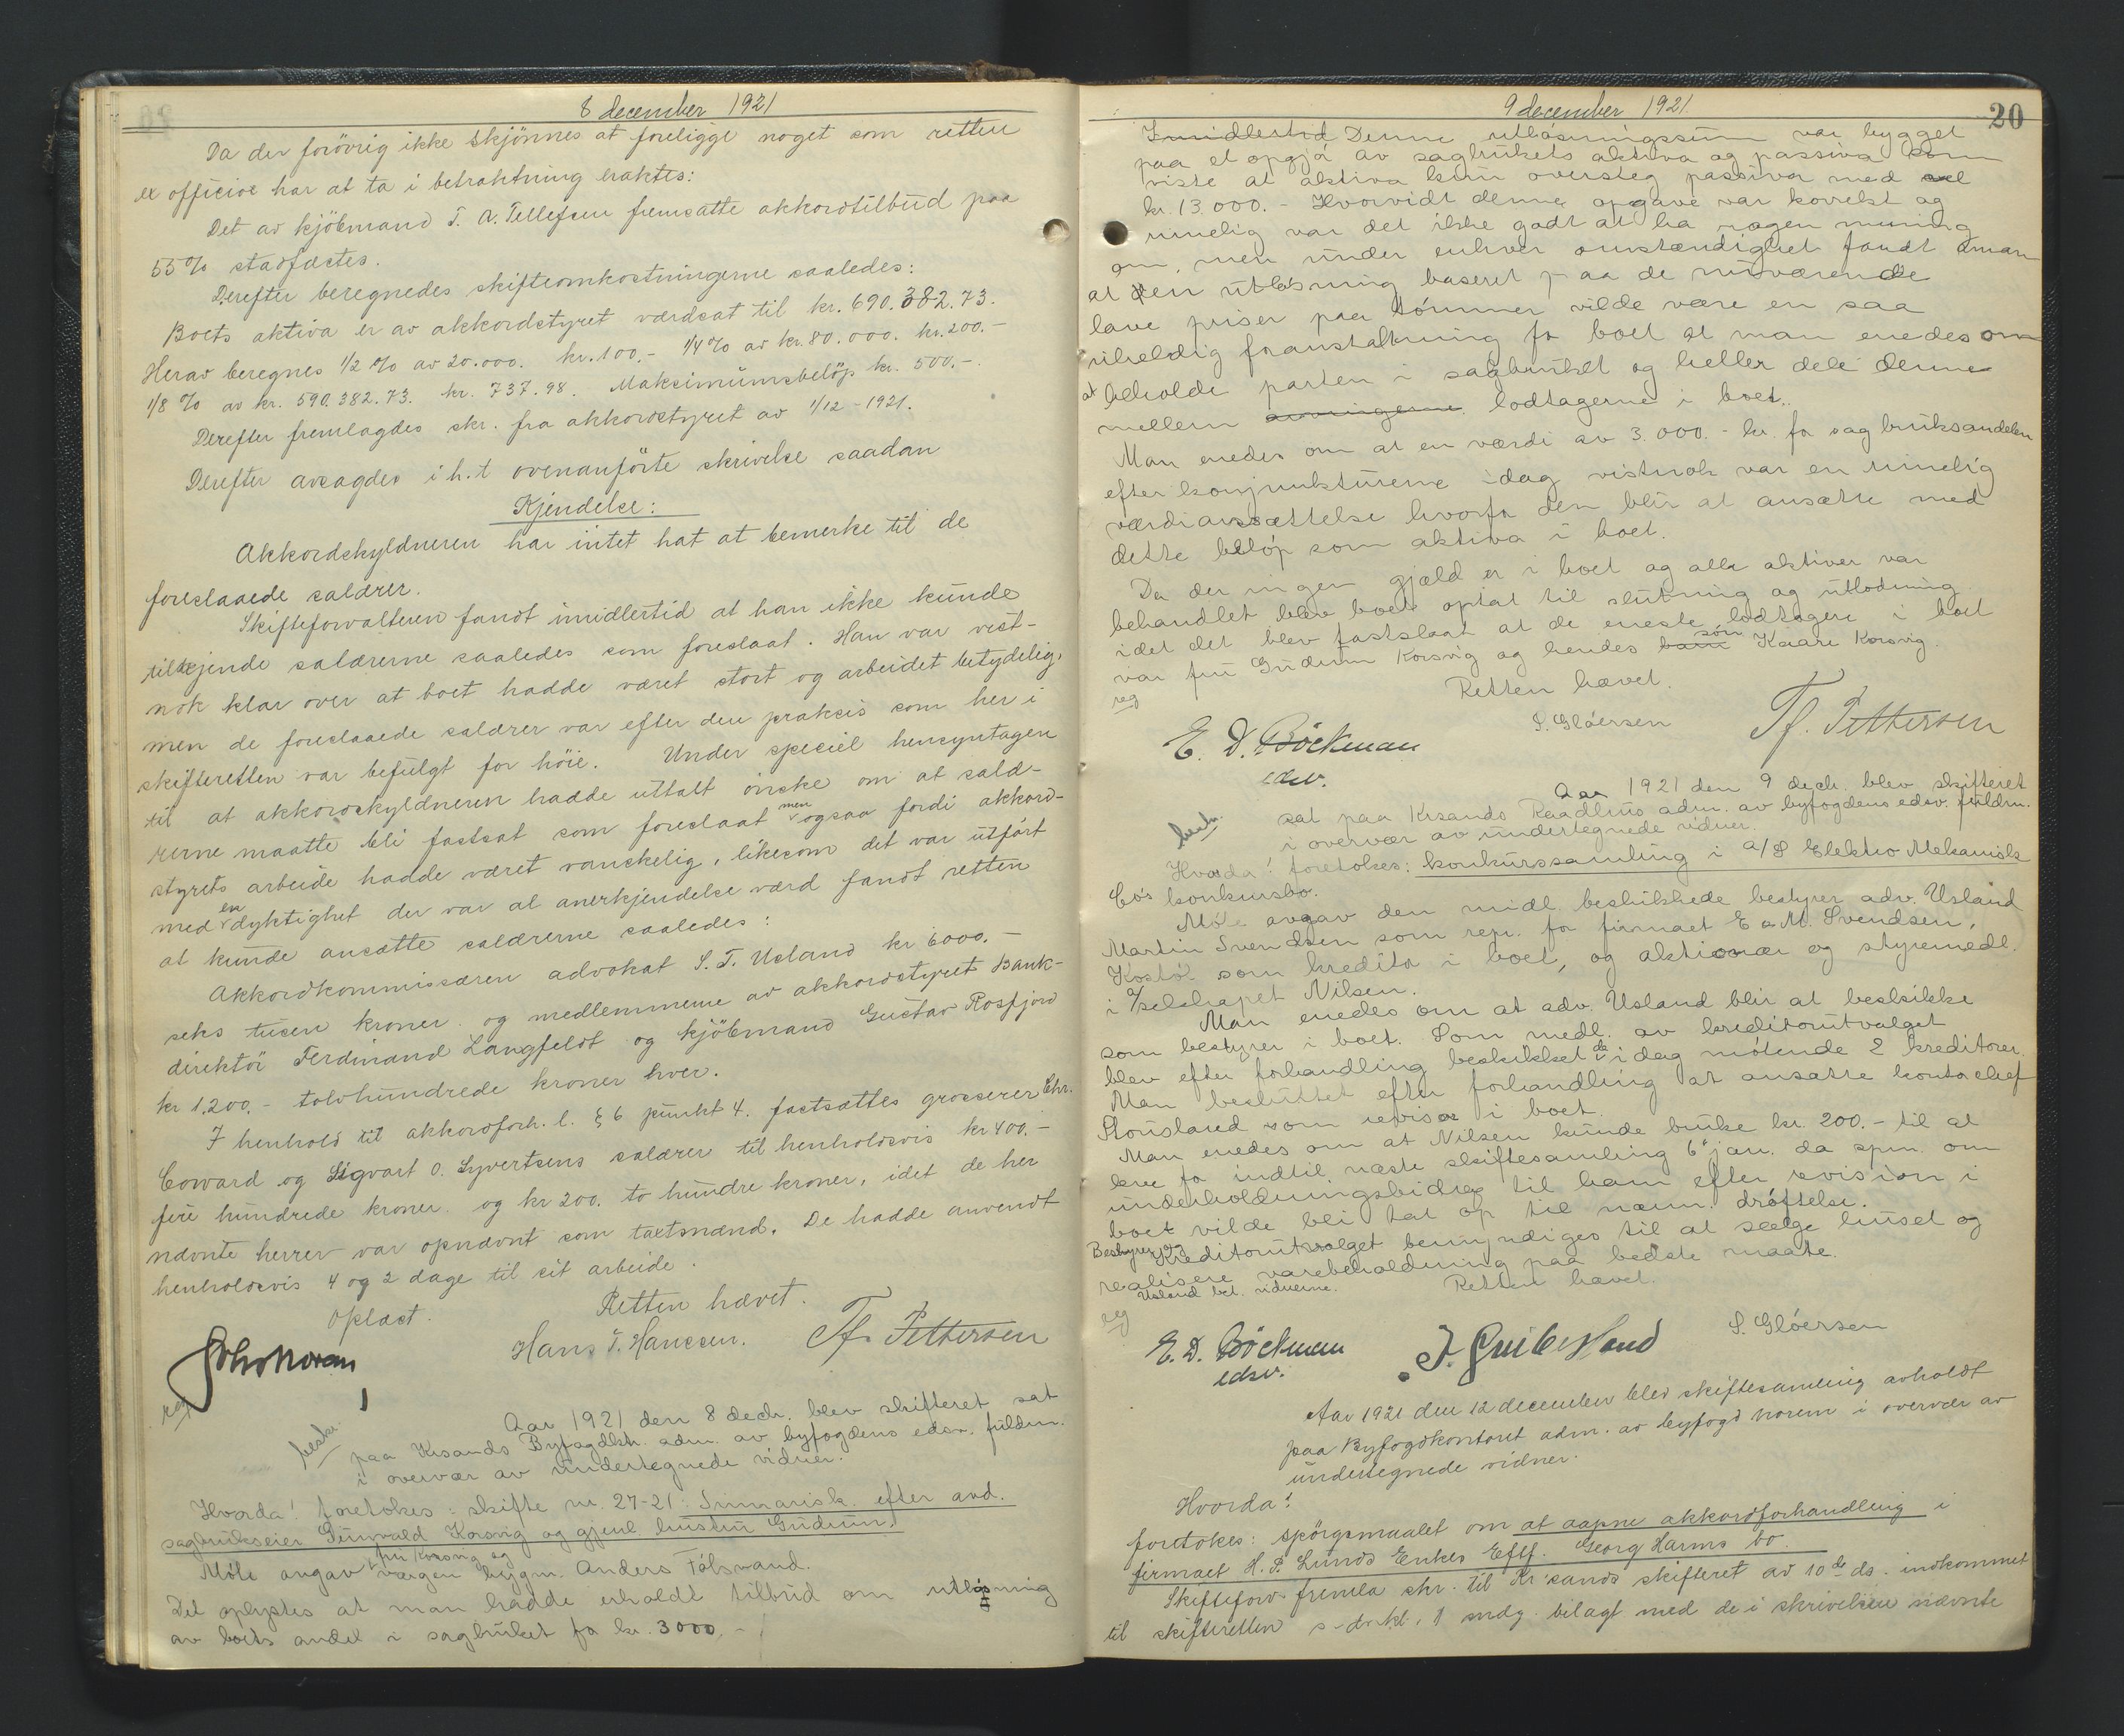 8 december 1921
Da der forövrig ikke skjönnes at foreligge noget som retten
ex officioe har at ta i betraktning eraktes:
Det av kjöbmand T. A. Tellefsen fremsatte akkordtilbud paa
55% stadfæstes.
Derefter beregnedes skifteomkostningerne saaledes:
Boets aktiva er av akkordstyret værdsat til kr. 690.382.73.
Herav beregnes 1/2 % av 20.000. kr. 100.- 1/4 % av kr. 80.000. kr. 200.-
1/8 % av kr. 590.382.73. kr. 737.98. Maksimumsbelöp kr. 500.-
Derefter fremlagdes skr. fra akkordstyret av 1/12-1921.
Derefter avsagdes i h.t ovenanförte skrivelse saadan
Kjendelse:
Akkordskyldneren har intet hat at bemerke til de
foreslaaede salærer.
Skifteforvalteren fandt imidlertid at han ikke kunde
tilkjende salærerne saaledes som foreslaat. Han var vist-
nok klar over at boet hadde været stort og arbeidet betydelig,
men de foreslaaede salærer var efter den praksis som her i
skifteretten var befulgt for höie. Under speciel hensyntagen
til at akkordskyldneren hadde uttalt önske om at salæ-
rerne maatte bli fastsat som foreslaat men ogsaa fordi akkord-
styrets arbeide hadde været vanskelig, likesom det var utfört
med en dyktighet der var al anerkjendelse værd fandt retten
at kunde ansætte salærerne saaledes:
Akkordkommissæren advokat S. T. Usland kr 6000.-
seks tusen kroner og medlemmerne av akkordstyret Bank-
direktör Ferdinand Langfeldt og kjöbmand Gustav Rosfjord
kr 1.200.- tolvhundrede kroner hver.
I henhold til akkordforh. l. § 6 punkt 4. fastsættes grosserer Chr.
Coward og Sigvart O. Syvertsens salærer til henholdsvis kr 400.-
fire hundrede kroner og kr 200. to hundre kroner, idet de her
nævnte herrer var opnævnt som takstmænd. De hadde anvendt
henholdsvis 4 og 2 dage til sit arbeide.
Oplæst.
Retten hævet.
Hans T. Hanssen. Tf. Pettersen
reg
beskr.
Aar 1921 den 8 decbr. blev skifteret sat
paa Krsands Byfogdkt. adm. av byfogdens edsv. fuldm.
i overvær av undertegnede vidner.
Hvorda! foretokes: skifte nr. 27-21: Summarisk efter avd.
sagbrukseier Gunvald Korsvig og gjenl. hustru Gudrun.
Möte avgav fru Korsvig og værgen bygm. Anders Fölsvand.
Det oplystes at man hadde erholdt tilbud om utlösning
av boets andel i sagbruket for kr. 3000.-
9 december 1921
20
Imidlertid Denne utlösningssum var bygget
paa et opgjör av sagbrukets aktiva og passiva som
viste at aktiva kun oversteg passiva med
kr. 13.000.- Hvorvidt denne opgave var korrekt og
rimelig var det ikke godt at ha nogen mening
om, men under enhver omstændighet fandt man
at en utlösning baseret paa de nuværende
lave priser paa tömmer vilde være en saa
uheldig foranstaltning for boet at man enedes om
at beholde parten i sagbruket og heller dele denne
mellem arvingerne lodtagerne i boet.
Man enedes om at en værdi av 3.000.- kr. for sagbruksandelen
efter konjunkturerne idag vistnok var en rimelig
værdiansættelse hvorfor den blir at ansætte med
dette belöp som aktiva i boet.
Da der ingen gjæld er i boet og alle aktiver var
behandlet blev boet optat til slutning og utlodning
idet det blev fastslaat at de eneste lodtagere i boet
var fru Gudrun Korsvig og hendes barn sön Kaare Korsvig.
reg
Retten hævet.
E. D. Böckman
edsv.
S. Glöersen
Tf. Pettersen
beskr.
Aar 1921 den 9 decbr. blev skifteret
sat paa Krsands Raadhus adm. av byfogdens edsv. fuldm.
i overvær av undertegnede vidner.
Hvorda! foretokes: konkurssamling i A/S Elektro Mekanisk
Co's konkursbo.
Möte avgav den midl. beskikkede bestyrer adv. Usland
Martin Svendsen som repr. for firmaet E & M. Svendsen,
Kostöl som kreditor i boet, og aktionær og styremedl.
i A/selskapet Nilsen.
Man enedes om at adv. Usland blir at beskikke
som bestyrer i boet. Som medl. av kreditorutvalget
blev efter forhandling beskikket de idag mötende 2 kreditorer.
Man besluttet efter forhandling at ansætte kontorchef
Stousland som revisor i boet.
Man enedes om at Nilsen kunde bruke kr. 200.- til at
leve for indtil næste skiftesamling 6' jan. da spm. om
underholdningsbidrag til ham efter revision i
boet vilde bli tat op til nærm. dröftelse.
Bestyrer og Kreditorutvalget bemyndiges til at sælge huset og
realisere varebeholdning paa bedste maate.
Usland bet. vidnerne.
Retten hævet.
reg
E. D. Böckman
edsv.
S. Glöersen
Aar 1921 den 12 december blev skiftesamling avholdt
paa Byfogdkontoret adm. av byfogd Norem i overvær av
undertegnede vidner.
Hvorda!
foretokes: spörgsmaalet om at aapne akkordforhandling i
firmaet H. P. Lunds Enkes Eftf. Georg Harms bo.
Skifteforv. fremla skr. til Kr'sands skifteret av 10de ds. indkommet
til skifteretten s. d. kl. 1 mdg. bilagt med de i skrivelsen nævnte